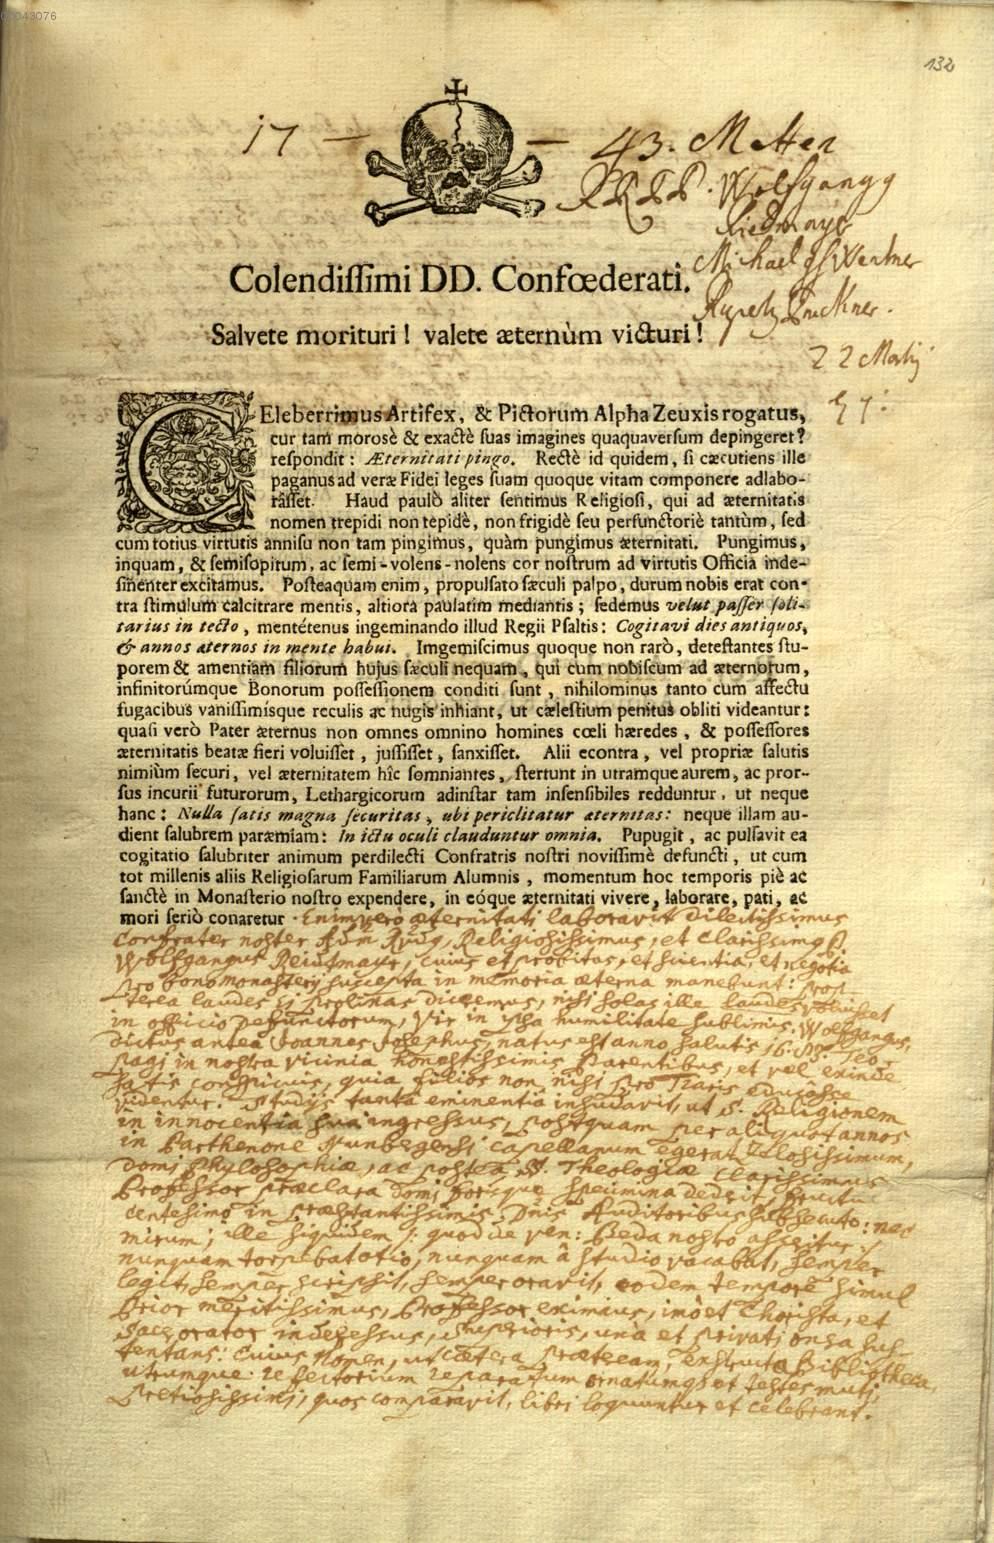 00043076
132
17 — — 43. Metten
RRPP. Wolfgangg
Riedmayr
Michael
Rupert Pruckner.
22 Martij
Colendiſſimi DD. Confœderati.
Salvete morituri! valete æternùm victuri!
CEleberrimus Artifex, & Pictorum Alpha Zeuxis rogatus,
cur tam morosè & exactè ſuas imagines quaquaverſum depingeret?
reſpondit: Æternitati pingo. Rectè id quidem, ſi cæcutiens ille
paganus ad veræ Fidei leges ſuam quoque vitam componere adlabo-
râſſet. Haud paulò aliter ſentimus Religioſi, qui ad æternitatis
nomen trepidi non tepidè, non frigidè ſeu perfunctoriè tantùm, ſed
cum totius virtutis anniſu non tam pingimus, quàm pungimus æternitati. Pungimus,
inquam, & ſemiſopitum, ac ſemi-volens-nolens cor noſtrum ad virtutis Officia inde-
ſinenter excitamus. Poſteaquam enim, propulſato ſæculi palpo, durum nobis erat con-
tra ſtimulum calcitrare mentis, altiora paulatim mediantis; ſedemus velut paſſer ſoli-
tarius in tecto, mentétenus ingeminando illud Regii Pſaltis: Cogitavi dies antiquos,
& annos æternos in mente habui. Imgemiſcimus quoque non rarò, deteſtantes ſtu-
porem & amentiam filiorum hujus ſæculi nequam, qui cum nobiſcum ad æternorum,
infinitorúmque Bonorum poſſeſſionem conditi ſunt, nihilominus tanto cum affectu
fugacibus vaniſſimíſque reculis ac nugis inhiant, ut cæleſtium penitus obliti videantur:
quaſi verò Pater æternus non omnes omnino homines cœli hæredes, & poſſeſſores
æternitatis beatæ fieri voluiſſet, juſſiſſet, ſanxiſſet. Alii econtra, vel propriæ ſalutis
nimiùm ſecuri, vel æternitatem hîc ſomniantes, ſtertunt in utramque aurem, ac pror-
ſus incurii futurorum, Lethargicorum adinſtar tam inſenſibiles redduntur, ut neque
hanc: Nulla ſatis magna ſecuritas, ubi periclitatur æternitas: neque illam au-
dient ſalubrem paræmiam: In ictu oculi clauduntur omnia. Pupugit, ac pulſavit ea
cogitatio ſalubriter animum perdilecti Confratris noſtri noviſſimè defuncti, ut cum
tot millenis aliis Religioſarum Familiarum Alumnis, momentum hoc temporis piè ac
ſanctè in Monaſterio noſtro expendere, in eóque æternitati vivere, laborare, pati, ac
mori ſeriò conaretur. Enimverò æternitati laboravit Dilectissimus
Confrater noster Religiosissimus, et Clarissimus P.
Wolfgangus Reidtmayr, cuius et probitas, et scientia, et negotia
pro bono monasterij suscepta in memoria æterna manebunt: prop
terea laudes ei plurimas diceremus, nisi solas ille laudes voluisset
in officio Defunctorum, Vir in ipsa humilitate sublimis. Wolfgangus,
dictus antea Joannes Josephus, natus est anno salutis
pagi in nostra vicinia honestissimis Parentibus, et vel exinde
satis conspicuis, quia filios non nisi pro Piaris educâsse
videntur. Studijs tanta eminentia insudavit, ut S. Religionem
in innocentia sua ingressus, postquam per aliquot annos
in Parthenone Nunbergensi Capellanum egerat Zelosissimum,
domi Phylosophiæ, ac postea S. Theologiæ Clarissimus
Professor præclara domi forisque specimina dedit, fructu
centesimo in præstantissimis Dnis Auditoribus subsecuto: nec
mirum; ille siquidem /: quod de ven: Beda nostro asseritur :/
nunquam torpebat otio, nunquam â studio vacabat, semper
legit, semper scripsit, semper oravit, eodem tempore simul
Prior meritissimus, Professor eximius, imò et Chorista, et
Sacer orator indefessus, Superioris, unà et privati onera sus-
tentans: Cuius Nomen, ut cætera præteream, exstructa Bibliotheca,
utrumque refectorium reparatum ornatumq3 et testes muti,
pretiosissimi, quos comparavit, libri loquuntur et celebrant.